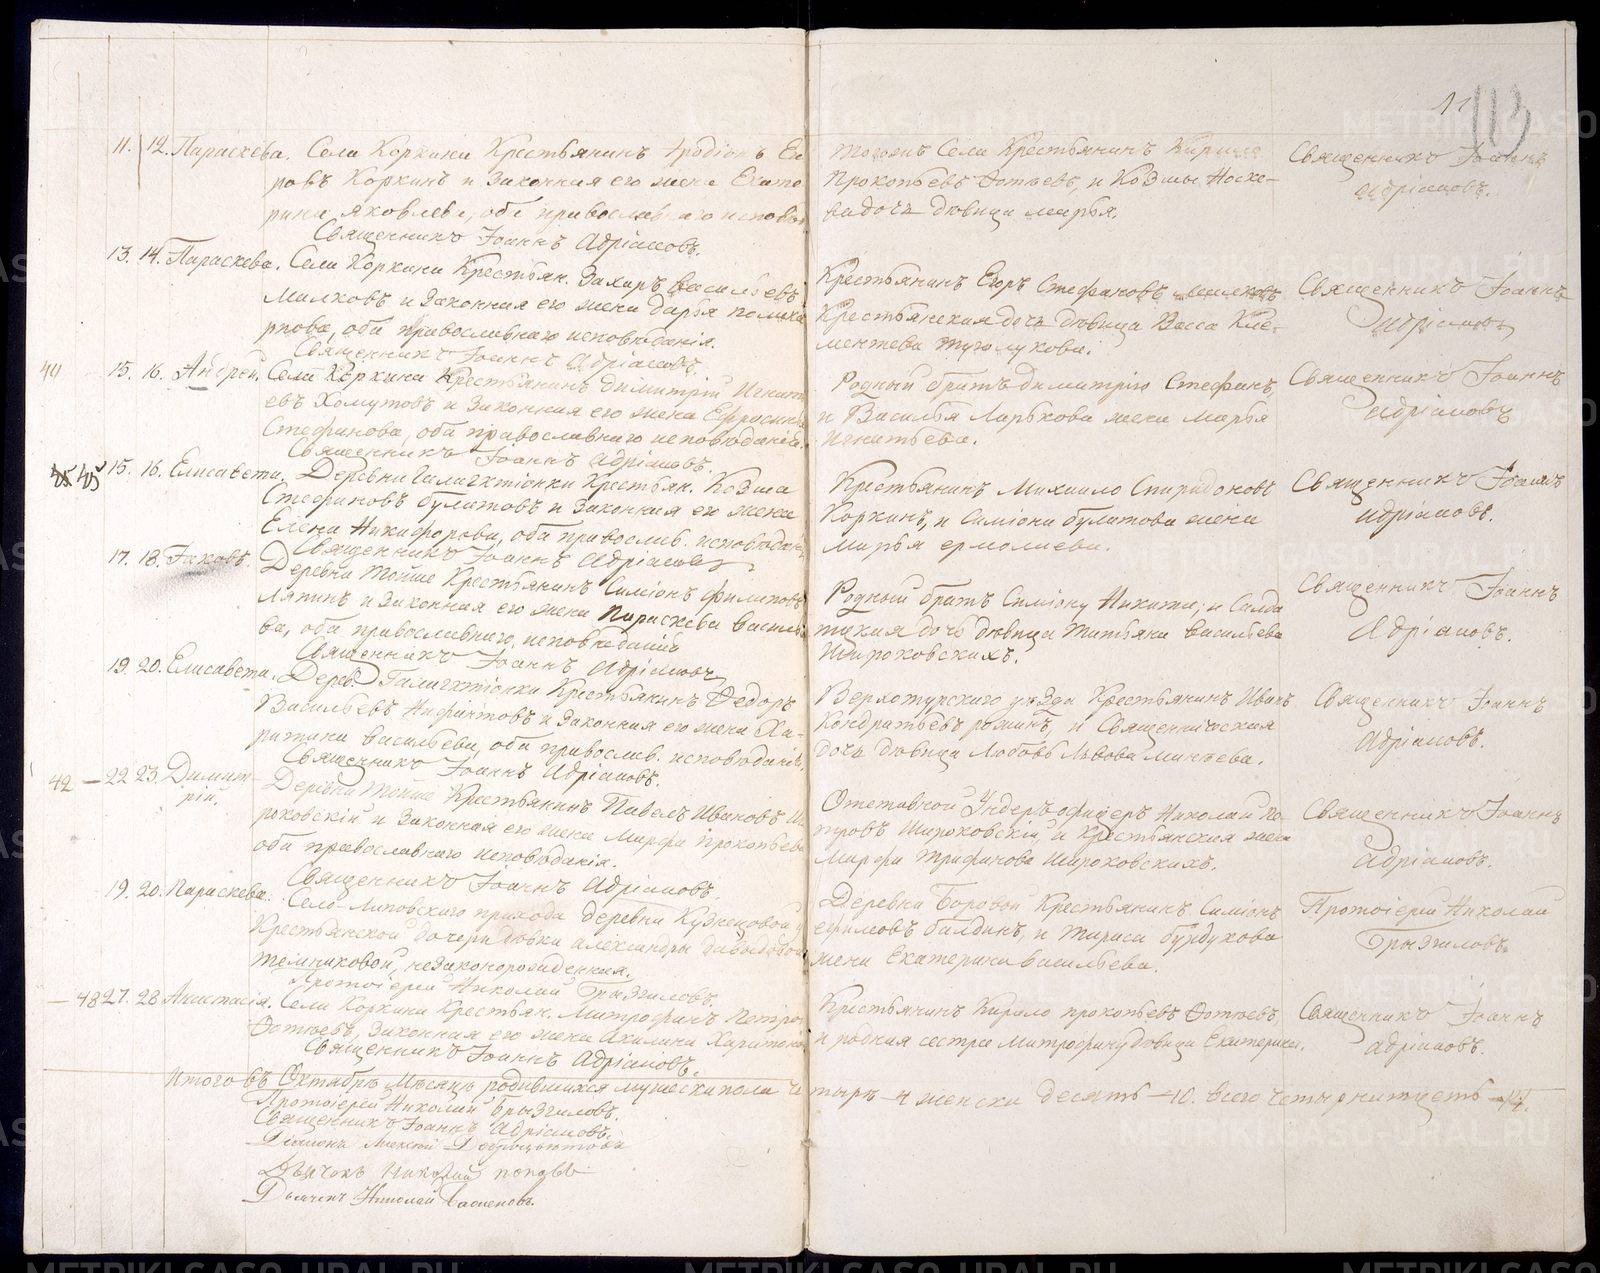 11
113
11. 12. Параскева. Села Коркина Крестьянинъ Иродіонъ Ек
ровъ Коркинъ и Законная его жена Екате
рина Яковлева, оба православнаго исповѣ
Священникъ Іоаннъ Адріановъ.
Тогожъ Села Крестьянинъ Кирила
Прокопьевъ Фотѣевъ, и Козмы Носко-
ва дочь дѣвица Марья.
Священникъ Іоаннъ
Адріановъ.
13. 14. Параскева. Села Коркина Крестьян. Захаръ Васильевъ
Милковъ и Законная его жена Дарья Полика
рпова, оба православнаго исповѣданія.
Священникъ Іоаннъ Адріановъ.
Крестьянинъ Егоръ Стефановъ Милковъ
Крестьянская дочь дѣвица Васса Кле-
ментева Туголукова.
Священникъ Іоаннъ
Адріановъ
15. 16. Андрей. Села Коркина Крестьянинъ Димитрій Игнать
евъ Хомутовъ и Законная его жена Ефросинья
Стефанова, оба православнаго исповѣданія.
Священникъ Іоаннъ Адріановъ.
Родный братъ Димитрію Стефанъ,
и Василья Ларькова жена Марья
Игнатьева.
Священникъ Іоаннъ
Адріановъ
15. 16. Елисавета. Деревни Галактіонки Крестьян. Козма
Стефановъ Булатовъ и Законная его жена
Елена Никифорова, оба православ. исповѣдан
Священникъ Іоаннъ Адріановъ
Крестьянинъ Михаило Спиридоновъ
Коркинъ, и Симіона Булатова жена
Марья Ермолаева.
Священникъ Іоаннъ
Адріановъ.
17. 18. Іаковъ. Деревни Крестьянинъ Симіонъ Филиповъ
Ляпинъ и Законная его жена Параскева Василь
ва, оба православнаго исповѣданія
Священникъ Іоаннъ Адріановъ
Родный братъ Симіону Никита, и Солда
тская дочь дѣвица Татьяна Васильева
Широковскихъ.
Священникъ Іоаннъ
Адріановъ.
19 20. Елисавета. Дерев. Галактіонки Крестьянинъ Ѳедоръ
Васильевъ и Законная его жена Ха-
ритина Васильева, оба православ. исповѣданія.
Священникъ Іоаннъ Адріановъ.
Верхотурскаго уѣзда Крестьянинъ Иванъ
Кондратьевъ и Священническая
дочь дѣвица Любовь Львова Минѣева.
Священникъ Іоаннъ
Адріановъ.
42 — 22 23. Димит-
рій. Деревни Крестьянинъ Павелъ Ивановъ Ши
роковскій и Законная его жена Марфа Прокопьева
оба православнаго исповѣданія.
Священникъ Іоаннъ Адріановъ.
Отставной Ундеръ-офицеръ Николай Пе-
тровъ Широковскій, и Крестьянская жена
Марфа Трифанова Широковскихъ.
Священникъ Іоаннъ
Адріановъ.
19. 20. Параскева. Село-Липовскаго прихода деревни Кузнецовой
Крестьянской дочери дѣвки Александры Давыдовой
Темниковой, незаконорожденная.
Протоіерей Николай Брызгаловъ.
Деревни Боровой Крестьянинъ Симіонъ
Ефимовъ Балдинъ, и Тараса Бурдукова
жена Екатерина Васильева.
Протоіерей Николай
Брызгаловъ.
27. 28 Анастасія. Села Коркина Крестьян. Митрофанъ Петро
Фотѣевъ, Законная его жена Акилина Харитоно
Священникъ Іоаннъ Адріановъ.
Крестьянинъ Кирило Прокопьевъ Фотѣевъ,
и родная сестра Митрофану дѣвица Екатерина.
Священникъ Іоаннъ
Адріановъ.
Итого въ Октябрѣ Мѣсяцѣ родившихся мужеска пола че
тыре — 4 женска десять — 10. Всего четырнатцеть — 14.
Протоіерей Николай Брызгаловъ.
Священникъ Іоаннъ Адріановъ.
Діаконъ
Дьячекъ Николай Поповъ
Дьячекъ Николай